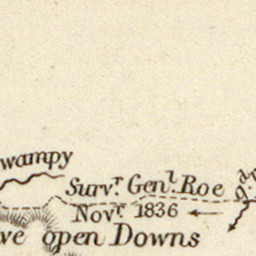 wampy
Survr. Genl. Roe
Novr. 1836
ve open Downs